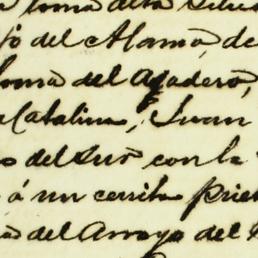 a loma de la Silla
jo del Alamo, de
loma del Agudero,
a Catalina, Juan
s del Sur con la
á un cerrito Prie
as del Arroyo del